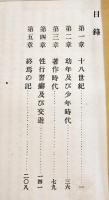 目錄
第一章 十八世紀 一
第二章 幼年及び少年時代 三六
第三章 著作時代 七九
第四章 性行習癖及び交遊 一四一
第五章 終焉の記 二〇八